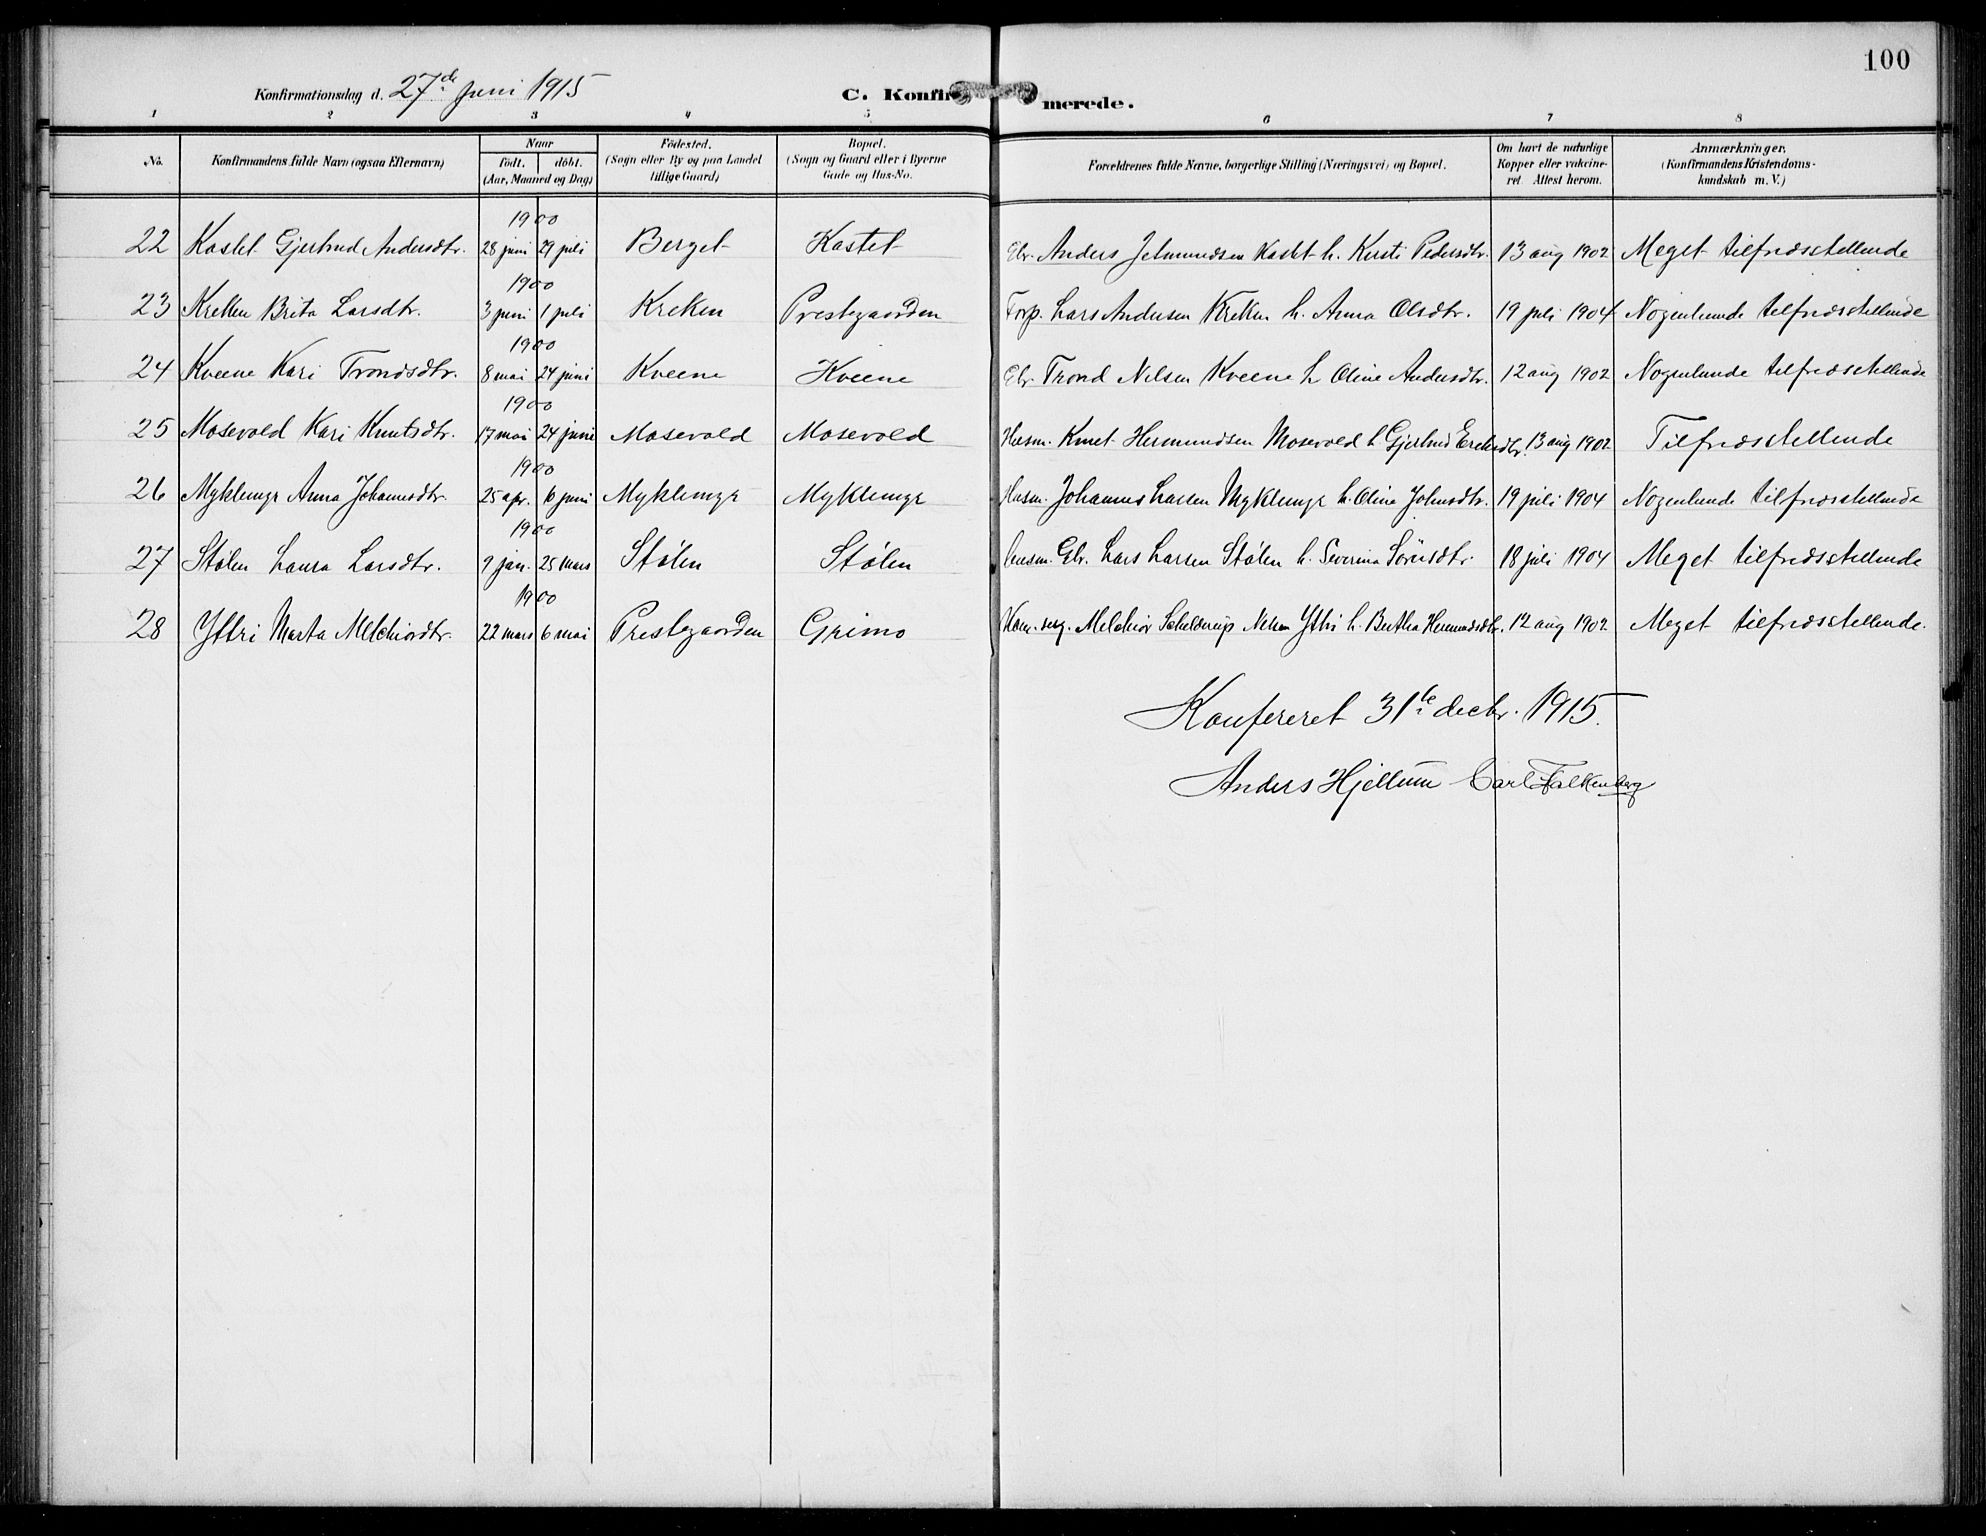 100
Konfirmationsdag d. 27de juni 1915 C. Konfirmerede.
1 2 3 4 5 6 7 8
No. Konfirmandens fulde Navn (ogsaa Efternavn) Naar födt. döbt. (Aar, Maaned og Dag) Födested. (Sogn eller By og paa Landet tillige Gaard) Bopæl. (Sogn og Gaard eller i Byerne Gade og Hus-No. Forældrenes fulde Navne, borgerlige Stilling (Næringsvei) og Bopæl. Om havt de naturlige Kopper eller vakcineret. Attest herom. Anmærkninger. (Konfirmandens Kristendomskundskab m. V.)
1900
22 Kastet Gjertrud Andersdtr. 28 juni 29 juli Berget Kastet Gbr. Anders Jetmundsen Kastet h. Kirsti Pedersdtr. 13 aug 1902 Meget tilfredsstellende
1900
23 Kreken Brita Larsdtr. 3 juni 1 juli Kreken Prestegaarden Forp. Lars Andersen Kreken h. Anna Olsdtr. 19 juli 1904 Nogenlunde tilfredsstellende
1900
24 Kveene Kari Trondsdtr. 8 mai 24 juni Kveene Kveene Gbr. Trond Nilsen Kveene h. Oline Andersdtr. 12 aug 1902 Nogenlunde tilfredsstellende
1900
25 Mosevold Kari Knutsdtr. 17 mai 24 juni Mosevold Mosevold Husm. Knut Hermundsen Mosevold h. Gjertrud Eriksdtr. 13 aug 1902 Tilfredsstellende
1900
26 Myklemyr Anna Johannesdtr. 25 apr. 10 juni Myklemyr Myklemyr Husm. Johannes Larsen Myklemyr h. Oline Johnsdtr. 19 juli 1904 Nogenlunde tilfredsstellende
1900
27 Stølen Laura Larsdtr. 9 jan. 25 mars Stølen Stølen Gbr. Lars Larsen Stølen h. Severina Sørensdtr. 18 juli 1904 Meget tilfredsstellende
1900
28 Yttri Marta Melchiordtr. 22 mars 6 mai Prestegaarden Grimo Melchior Schelderup Nilsen Yttri h. Bertha Hermundsdtr. 12 aug 1902 Meget tilfredsstellende.
Konfereret 31te decbr. 1915.
Anders Hjellum Carl Falkenberg